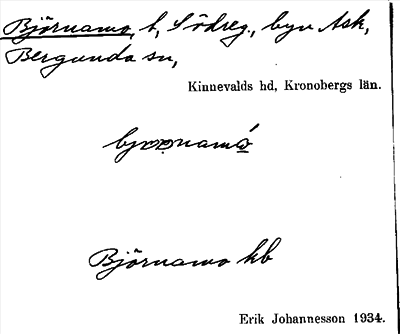 Björnamo, t, Södreg., byn Ask,
Bergunda sn,
Kinnevalds hd, Kronobergs län.
Björnamo kb
Erik Johannesson 1934.